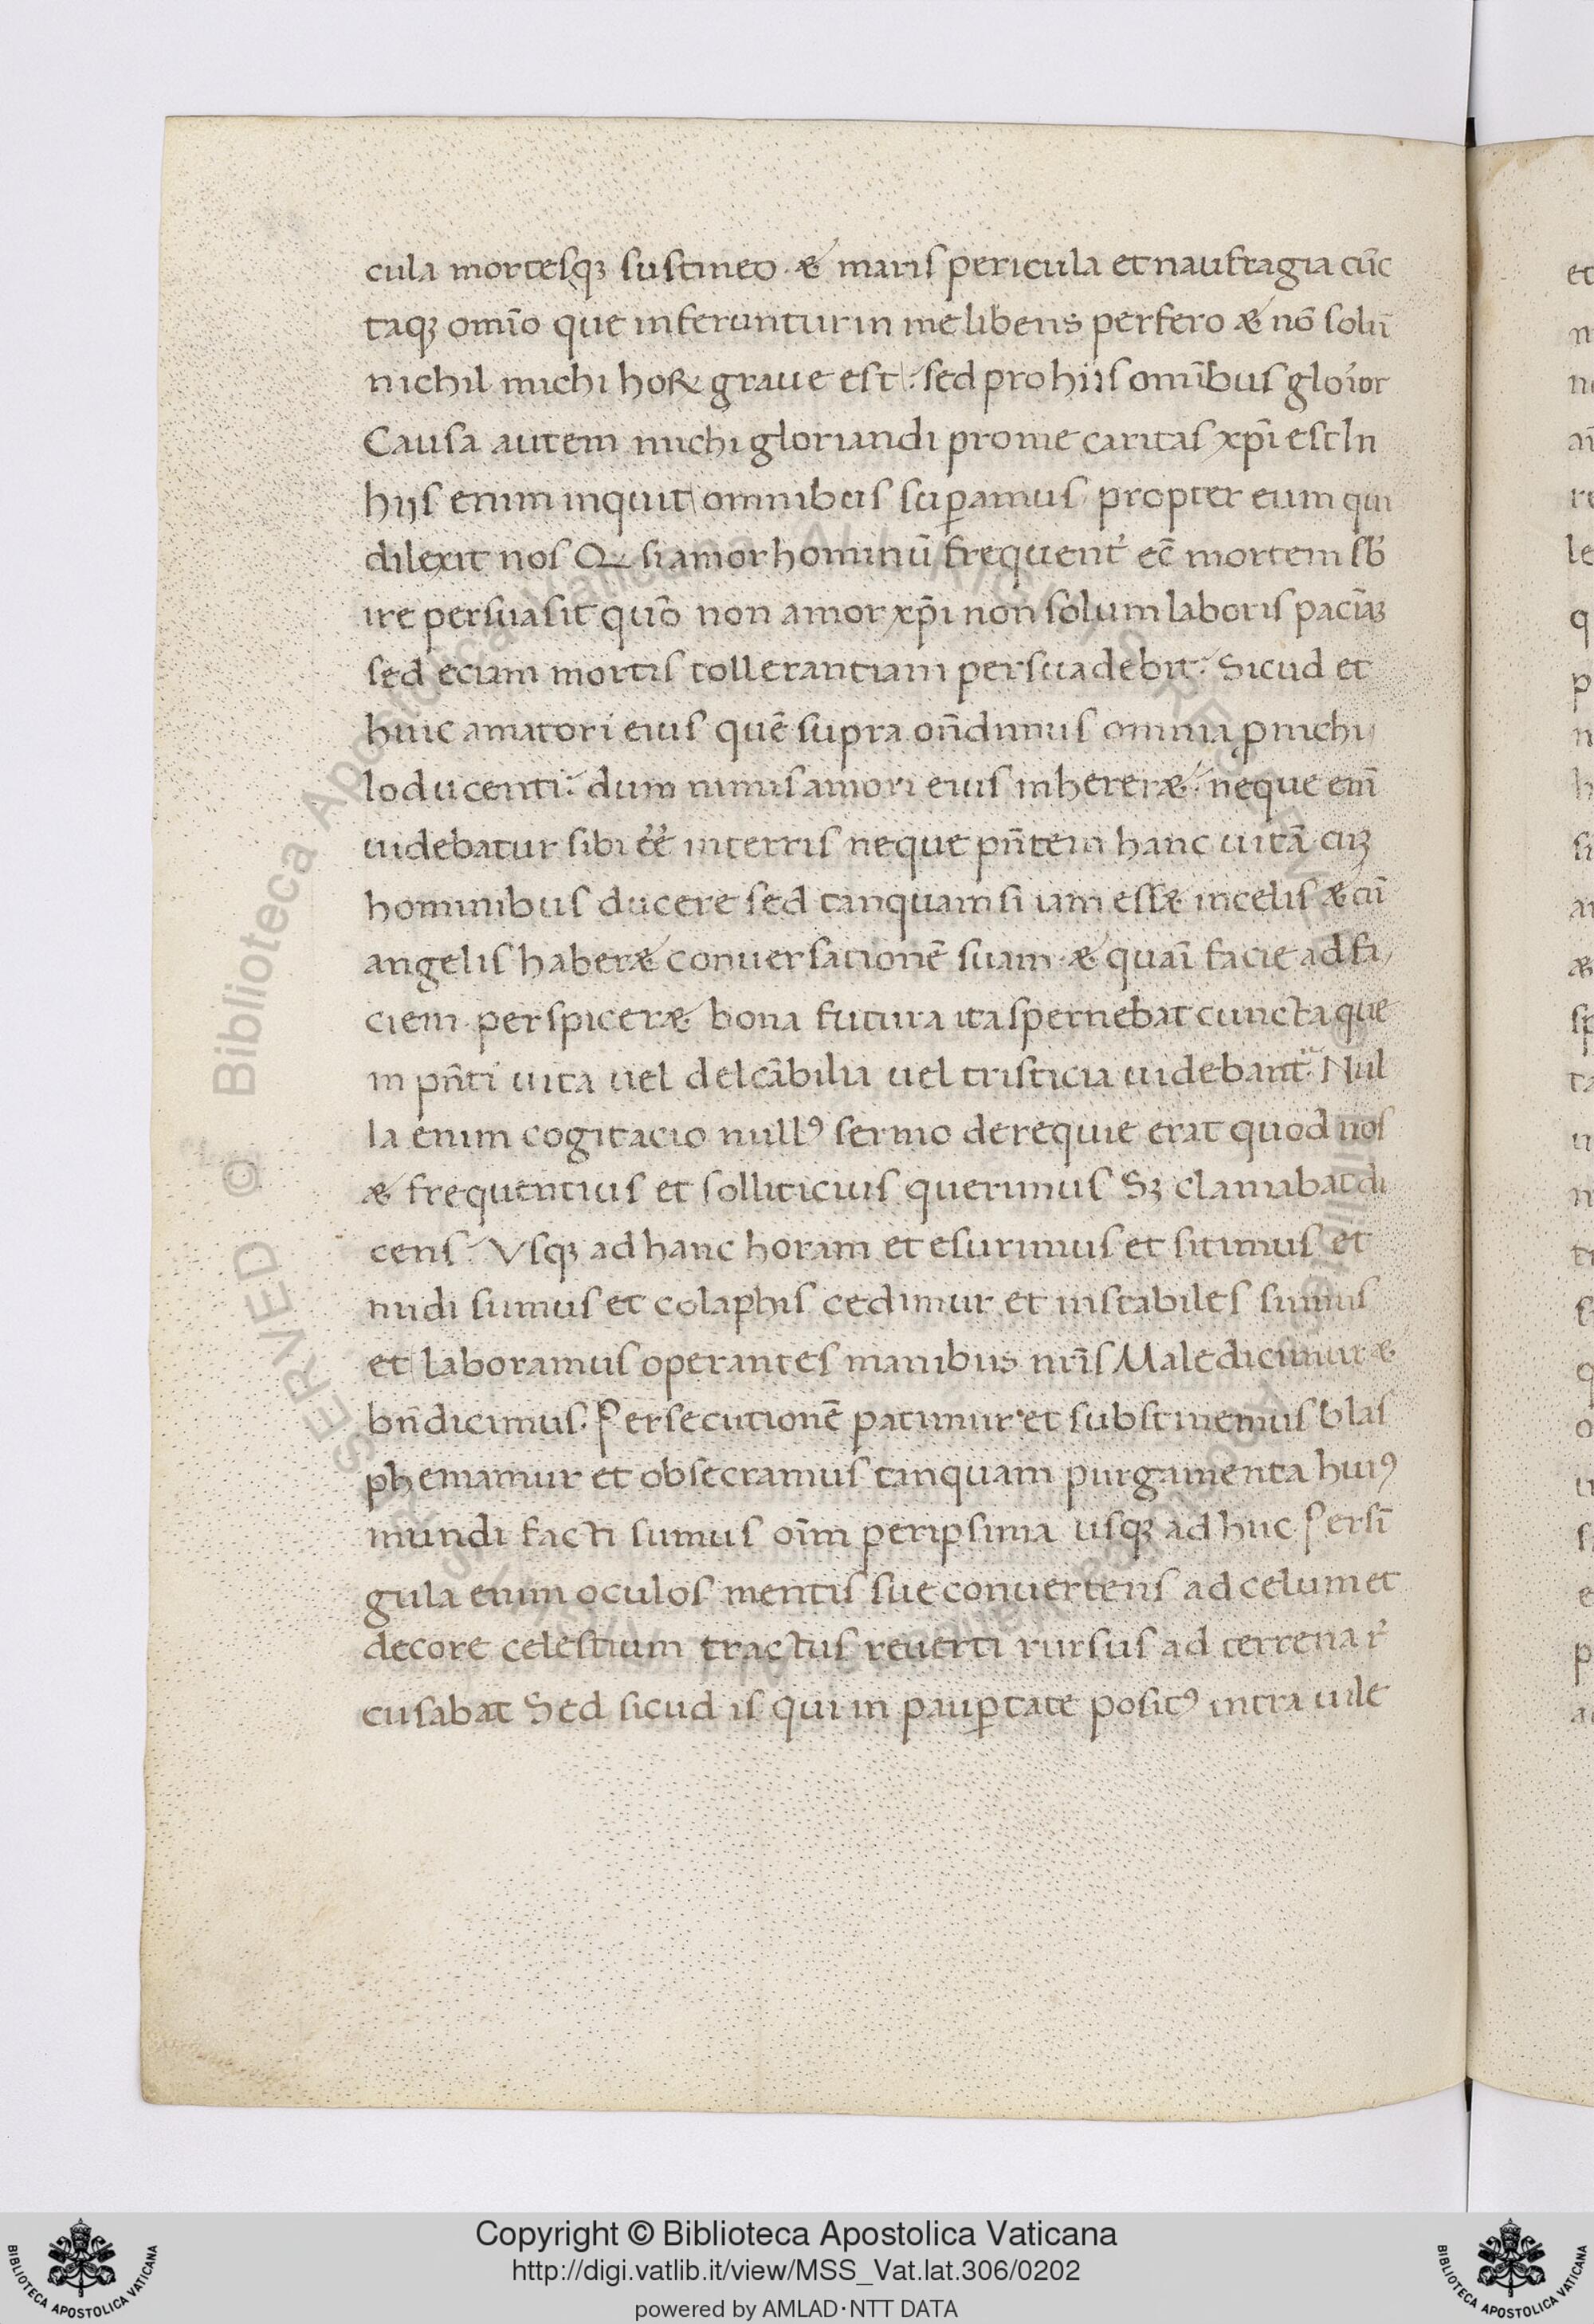 cula mortesqꝫ sustineo · & maris pericula et naufragia cūc
taqꝫ omīo que inferuntur in me libens perfero & nō solū
nichil michi hoꝝ graue est : sed pro hiis omībus glorior
Causa autem michi gloriandi pro me caritas xp̄i est In
hijs enim inquit omnibus suꝑamus propter eum qui
dilexit nos Q si amor hominū frequent̄ ec̄ mortem sb̄
ire persuasit quō non amor xp̄i non solum laboris paciāꝫ
sed eciam mortis tollerantiam persuadebit : Sicud et
huic amatori eius quē supra on̄dimus omnia ꝓ nichi
lo ducenti : dum nimis amori eius inherer& : neque enī
uidebatur sibi ēē in terris neque pn̄tem hanc uitā cuꝫ
hominibus ducere sed tanquam si iam ess& in celis & cū
angelis haber& conuersationē suam · & quasi facie ad fa
ciem · perspicer& bona futura ita spernebat cuncta que
in pn̄ti uita uel delcābilia uel tristicia uidebant̄ Nul
la enim cogitacio nullꝰ sermo de requie erat quod nos
& frequentius et solliticius querimus Sꝫ clamabat di
cens : Vsqꝫ ad hanc horam et esurimus et sitimus et
nudi sumus et colaphis cedimur et instabiles sumus
et laboramus operantes manibus nr̄is Maledicimur &
bn̄dicimus · Persecutionē patimur · et substinemus blas
phemamur et obsecramus tanquam purgamenta huiꝰ
mundi facti sumus oīm peripsima usqꝫ ad huc Per sī
gula enim oculos mentis sue conuertens ad celum et
decore celestium tractus reuerti rursus ad terrena r̄
cusabat Sed sicud is qui in pauꝑtate positꝰ intra uile
Copyright © Biblioteca Apostolica Vaticana
http://digi.vatlib.it/view/MSS_Vat.lat.306/0202
powered by AMLAD·NTT DATA